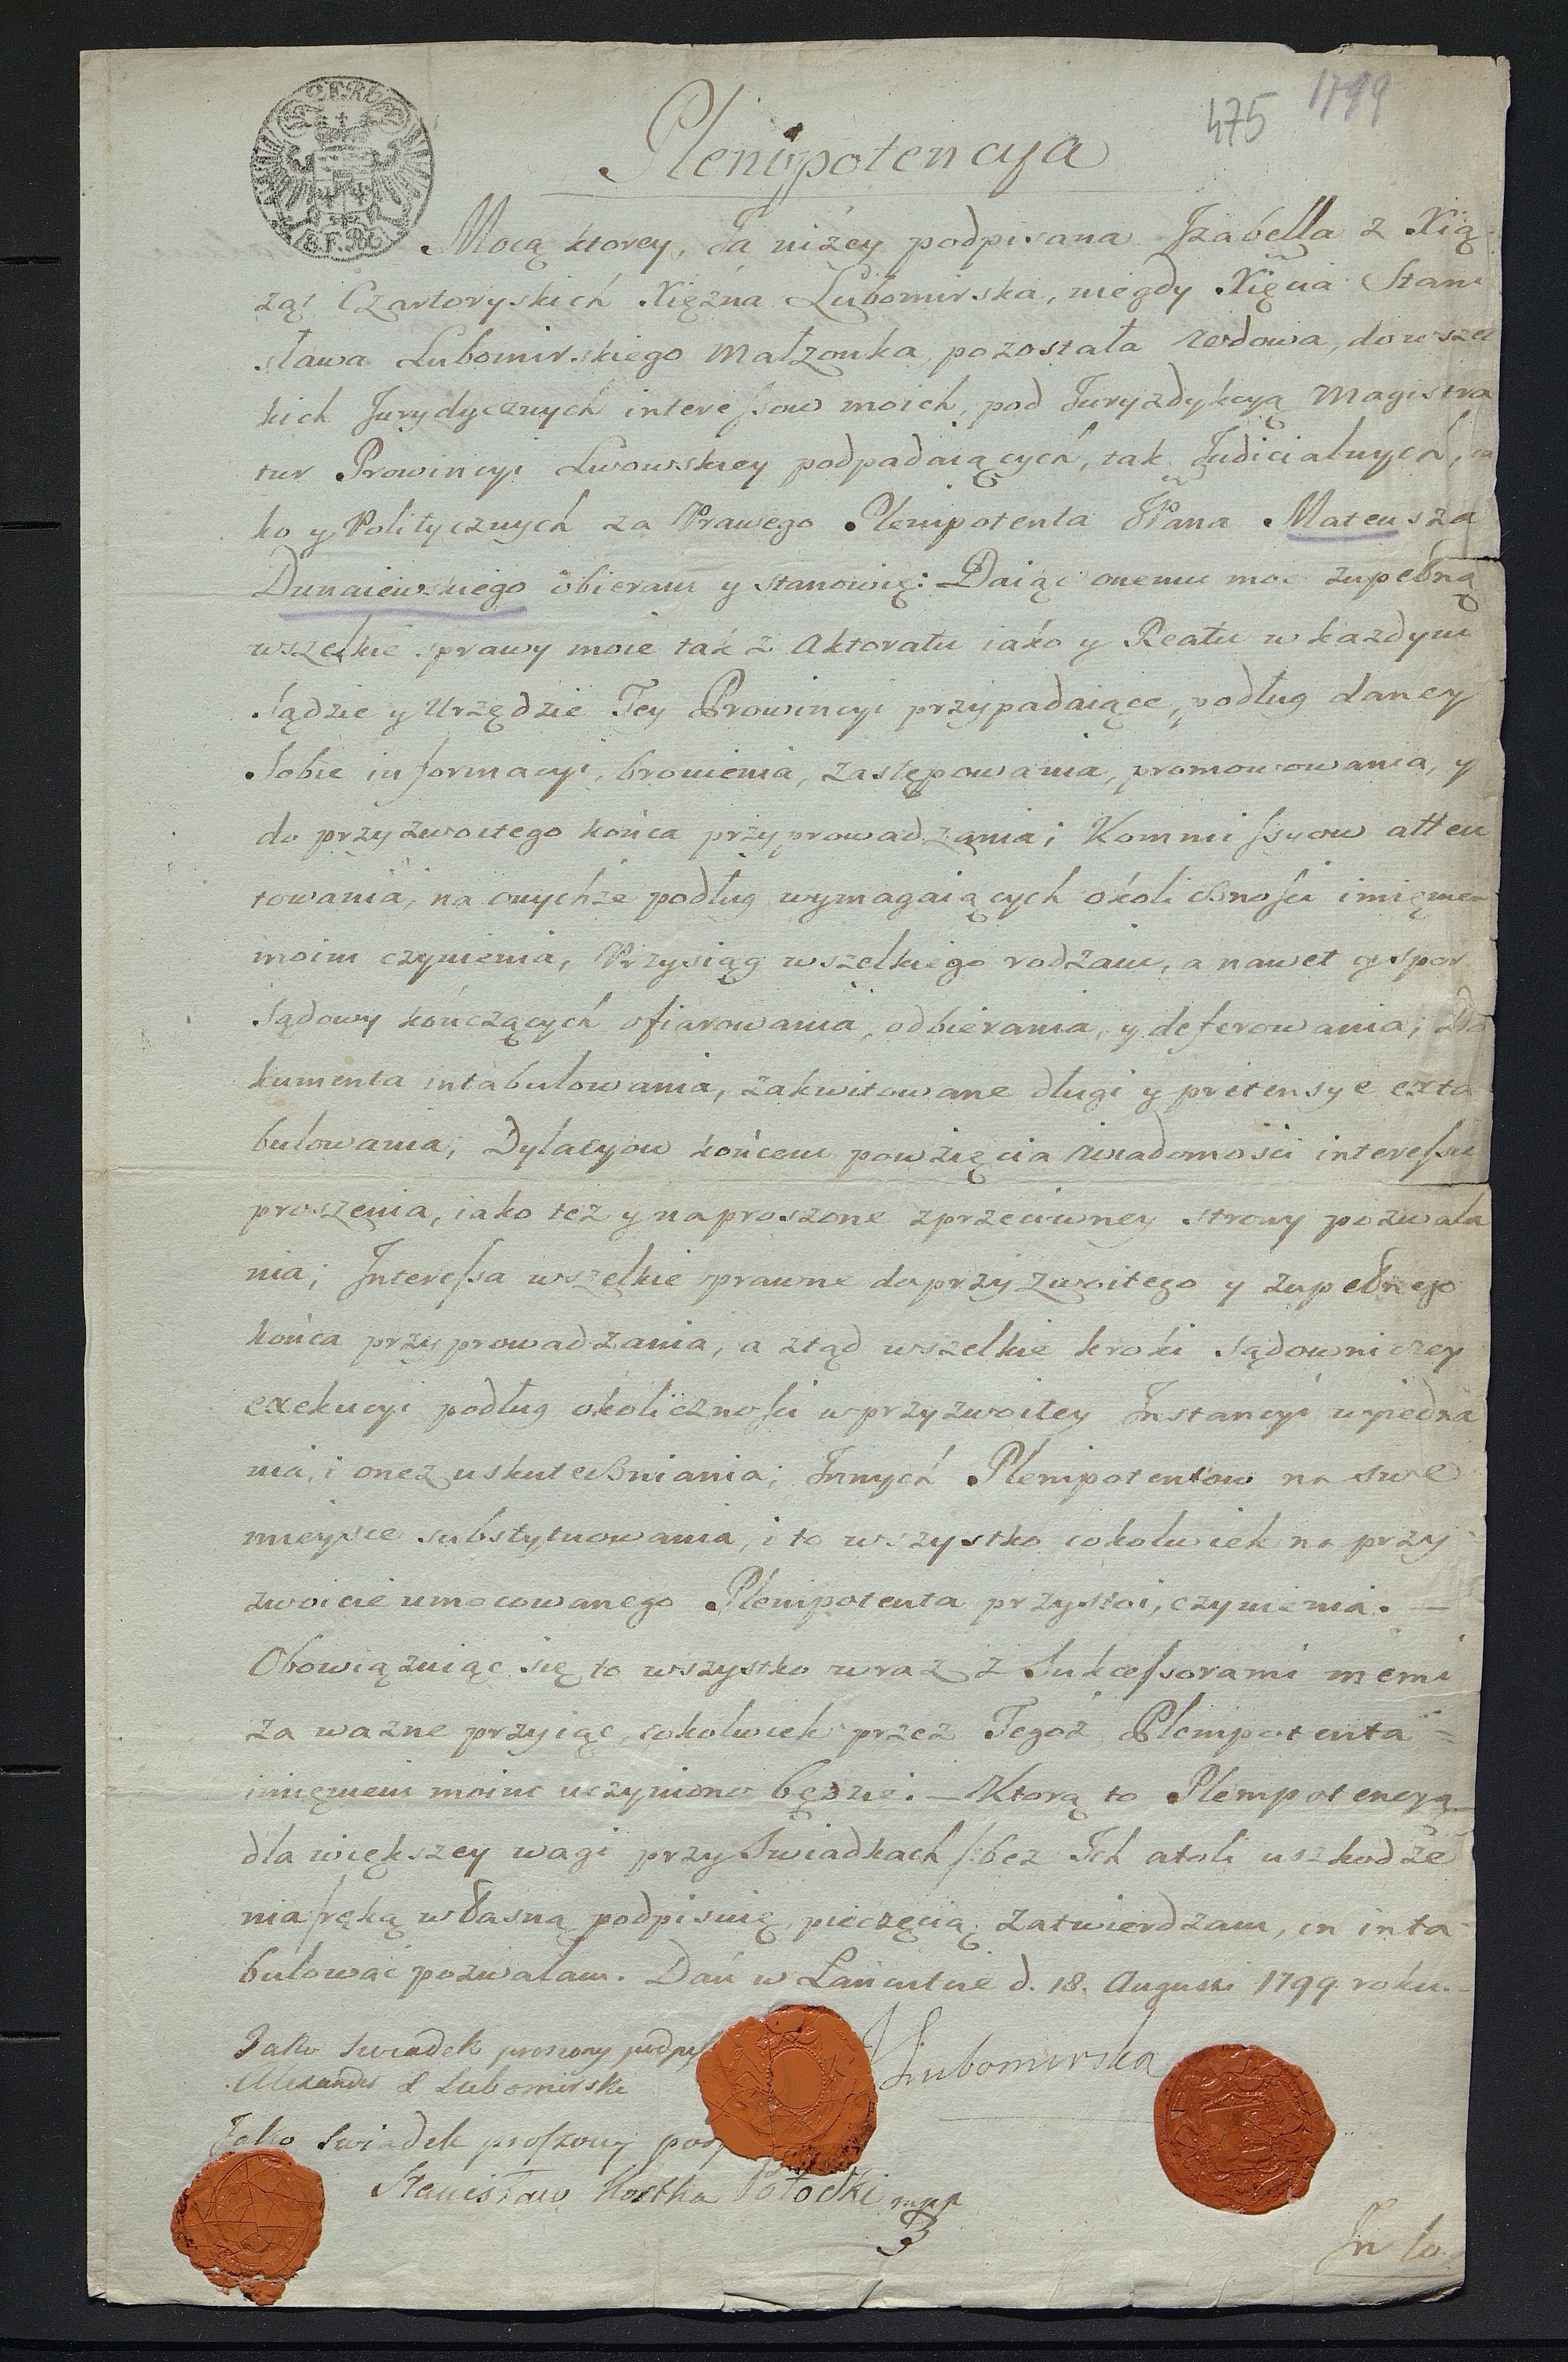 475 1799
Plenipotencya
Mocą ktorey, Ja niżey podpisana Jzabella z Xią
żąt Czartoryskich Xiężna Lubomirska, niegdy Xięcia Stani
sława Lubomirskiego Małzonka pozostała Wdowa, do wszel
kich Jurydycznych interessow moich, pod Juryzdykcyą Magistra
tur Prowincyi Lwowskiey podpadaiących, tak Judicialnych, ia
ko y Politycznych za Prawego Plenipotenta JPana Mateusza
Dunaiewskiego obieram y stanowię: Daiąc onemu moc zupełną
wszelkie sprawy moie tak z Aktoratu iako y Reatu w każdym
Sądzie y Urzędzie Tey Prowincyi przypadaiące, podług daney
Sobie informacyi, bronienia, zastępowania, promowowania, y
do przyzwoitego końca przyprowadzania; Kommissyow atten
towania, na onychże podług wymagaiących okolicznosci imięniem
moim czynienia, Przysiąg wszelkiego rodzaiu, a nawet y spor
Sądowy kończących ofiarowania, odbierania, y deferowania; Do
kumenta intabulowania, zakwitowane długi y pretensye exta
bulowania; Dylacyow końcem powzięcia wiadomości interessu
proszenia, iako też y naproszone z przeciwney strony pozwala
nia; Jnteressa wszelkie prawne do przyzwoitego y zupełnego
końca przyprowadzania, a ztąd wszelkie kroki Sądowniczey
exekucyi podług okoliczności w przyzwoitey Jnstancyi wyiedna
nia, i onez uskuteczniania; Jnnych Plenipotentow na swe
mieysce substytuowania, i to wszystko cokolwiek na przy
zwoicie umocowanego Plenipotenta przystoi, czynienia. —
Obowiązuiąc się to wszystko wraz z Sukcessorami memi
za wazne przyiąc, cokolwiek przez Tegoż Plenipotenta =
imięniem moim uczyniono będzie. — Ktorą to Plenipotencyą
dla większey wagi przy Swiadkach /:bez Jch atoli uszkodze
nia/ ręką własną podpisuię, pieczęcią zatwierdzam, in inta
bulować pozwalam. Dań w Łancucie d. 18. Augusti 1799 roku. —
Jako swiadek proszony podpis
Alexander X Lubomirski
JLubomirska
Jako Swiadek proszony pod
Stanisław Kostka Potocki mpp